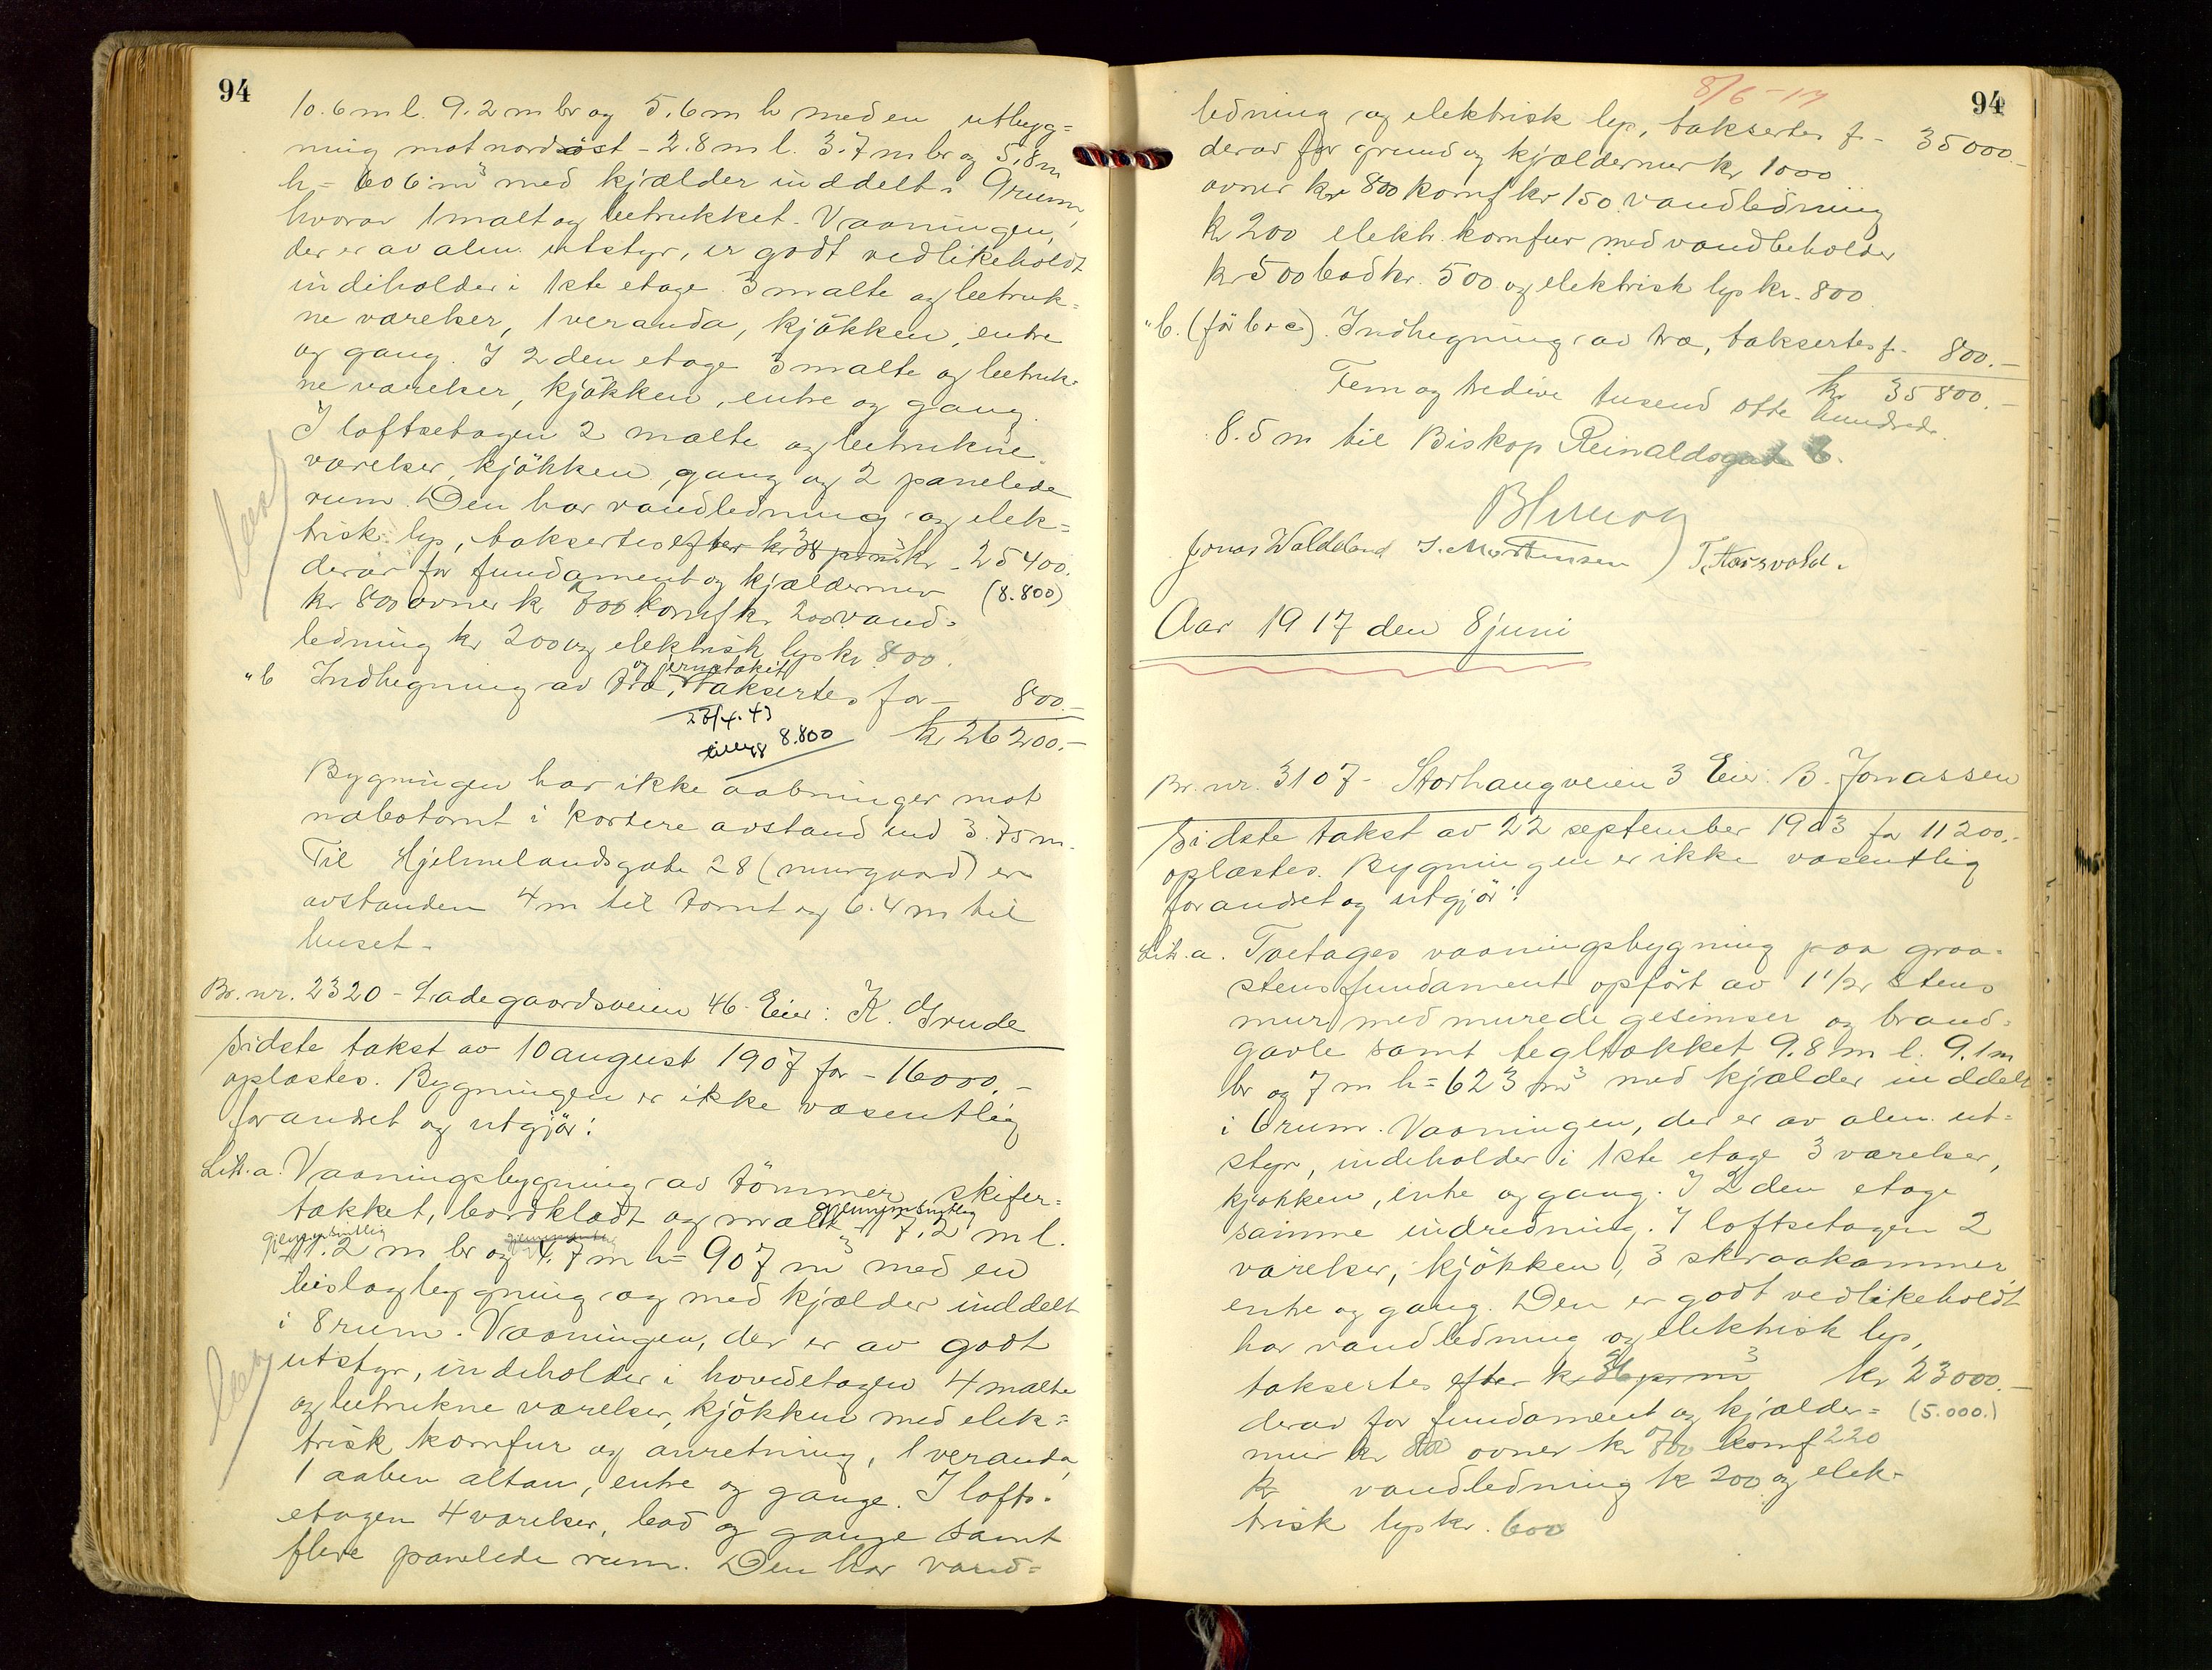 94
10.6 m l. 9.2 m br og 5.6 m h med en utbyg=
ning mot nordöst - 2.8 m l. 3.7 m br og 5.8 m
h = 606 m³ med kjælder inddelt i 9 rum,
hvorav 1 malt og betrukket. Vaaningen,
der er av alm. utstyr, er godt vedlikeholdt
indeholder i 1ste etage 3 malte og betruk=
ne værelser, 1 veranda, kjökken, entre
og gang. I 2den etage 3 malte og betruk=
ne værelser, kjökken, entre og gang.
I loftsetagen 2 malte og betrukne
værelser, kjökken, gang og 2 panelede
rum. Den har vandledning og elek=
trisk lys, taksertes efter kr 38 pr m³ kr - 25400.
derav for fundament og kjældermur (8.800)
kr 800 ovner kr 600 komf kr. 200 vand=
ledning kr 200 og elektrisk lys kr 800.
og jernstakit
" b Indhegning av træ, taksertes for - 800.-
26/4.43
8.800 kr 26200.-
Bygningen har ikke aabninger mot
nabotomt i kortere avstand end 3.75 m.
Til Hjelmelandsgate 28 (murgaard) er
avstanden 4 m til tomt og 6.4 m til
huset -
Br. nr. 2320 - Ladegaardsveien 46. Eier: K. Grude
Sidste takst av 10 august 1907 for - 16000.-
oplæstes. Bygningen er ikke væsentlig
forandret og utgjör:
Lit. a. Vaaningsbygning av tömmer, skifer=
tækket, bordklædt og malt - gjennemsnitlig 7.2 m l.
gjennemsnitlig
.2 m br og 4.7 m h = 907 m³ med en
bislagbygning og med kjælder inddelt
i 8 rum. Vaaningen, der er av godt
utstyr, indeholder i hovedetagen 4 malte
og betrukne værelser, kjökken med elek=
trisk komfur og anretning, 1 veranda,
1 aaben altan, entre og gange. I lofts=
etagen 4 værelser, bad og gange samt
flere panelede rum. Den har vand=
8/6-17
94
ledning og elektrisk lys, taksertes f - 35000.-
derav for grund og kjældermur kr 1000
ovner kr 800 komf kr 150 vandledning
kr 200 elektr. komfur med vandbeholder
kr 500 bad kr. 500 og elektrisk lys kr. 800
" b. (för b + c). Indhegning av træ, taksertes f - 800.-
kr 35800.-
Fem og tredive tusend otte hundrede.
8.5 m til Biskop Reinaldsgate 6.
Jonas Waldeland J. Mortensen T. Haesvold.
Aar 1917 den 8 juni
Br. nr. 3107 - Storhaugveien 3 Eier: B. Jonassen
Sidste takst av 22 september 1903 for 11200.-
oplæstes. Bygningen er ikke væsentlig
forandret og utgjör:
Lit. a. Toetages vaaningsbygning paa graa=
stensfundament opfört av 1 1/2 stens
mur med murede gesimser og brand=
gavle samt tegltækket 9.8 m l. 9.1 m
br og 7 m h = 623 m³ med kjælder inddelt
i 6 rum. Vaaningen, der er av alm. ut=
styr, indeholder i 1ste etage 3 værelser,
kjökken, entre og gang. I 2den etage
samme indredning. I loftsetagen 2
værelser, kjökken, 3 skraakammer
entre og gang. Den er godt vedlikeholdt
har vandledning og elektrisk lys,
taksertes efter kr 36 pr m³ kr 23000.-
derav for fundament og kjælder= (5.000.)
mur kr 800 ovner kr 700 komf 220
kr vandledning kr 200 og elek=
trisk lys kr. 600